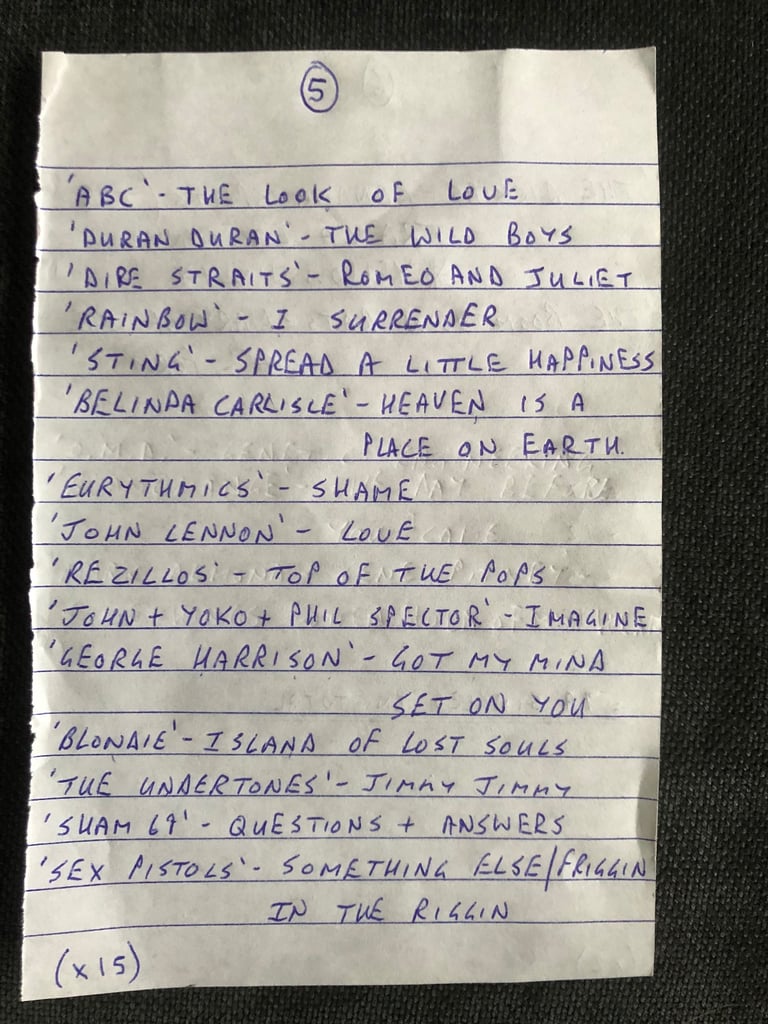 5
'ABC' - THE LOOK OF LOVE
'DURAN DURAN' - THE WILD BOYS
'DIRE STRAITS' - ROMEO AND JULIET
'RAINBOW' - I SURRENDER
'STING' - SPREAD A LITTLE HAPPINESS
'BELINDA CARLISLE' - HEAVEN IS A
PLACE ON EARTH.
'EURYTHMICS' - SHAME
'JOHN LENNON' - LOVE
'REZILLOS' - TOP OF THE POPS
'JOHN + YOKO + PHIL SPECTOR' - IMAGINE
'GEORGE HARRISON' - GOT MY MIND
SET ON YOU
'BLONDIE' - ISLAND OF LOST SOULS
'THE UNDERTONES' - JIMMY JIMMY
'SHAM 69' - QUESTIONS + ANSWERS
'SEX PISTOLS' - SOMETHING ELSE/FRIGGIN
IN THE RIGGIN
(x15)